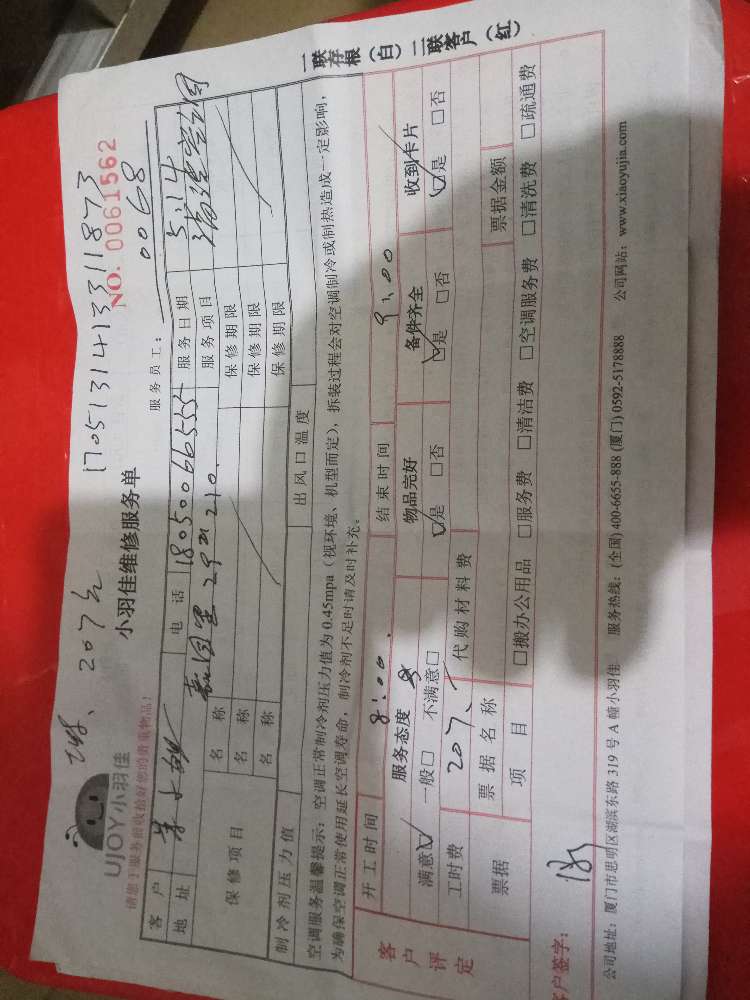 207元 17051314133 11873
UJOY小羽佳 小羽佳维修服务单 NO. 0061562
请您于服务前收拾好您的贵重物品! 服务员工: 0068
客户 电话 18050066555 服务日期 5.14
地址 29# 210. 服务项目 清洗空调
保修项目 名称 保修期限
名称 保修期限
名称 保修期限
制冷剂压力值 出风口温度
空调服务温馨提示:空调正常制冷剂压力值为 0.45mpa(视环境、机型而定),拆装过程会对空调制冷或制热造成一定影响,
为确保空调正常使用延长空调寿命,制冷剂不足时请及时补充。
一联存根(白)二联客户(红)
客户评定 开工时间 8:00. 结束时间 9:00
服务态度 物品完好 备件齐全 收到卡片
满意☑ 一般□ 不满意□ ☑是 □否 ☑是 □否 ☑是 □否
工时费 207. 代购材料费
票据 票据名称 票据金额
项目 □搬办公用品 □服务费 □清洁费 □空调服务费 □清洗费 □疏通费
客户签字:
公司地址:厦门市思明区湖滨东路 319 号 A 幢小羽佳 服务热线:(全国) 400-6655-888 (厦门) 0592-5178888 公司网站:www.xiaoyujia.com